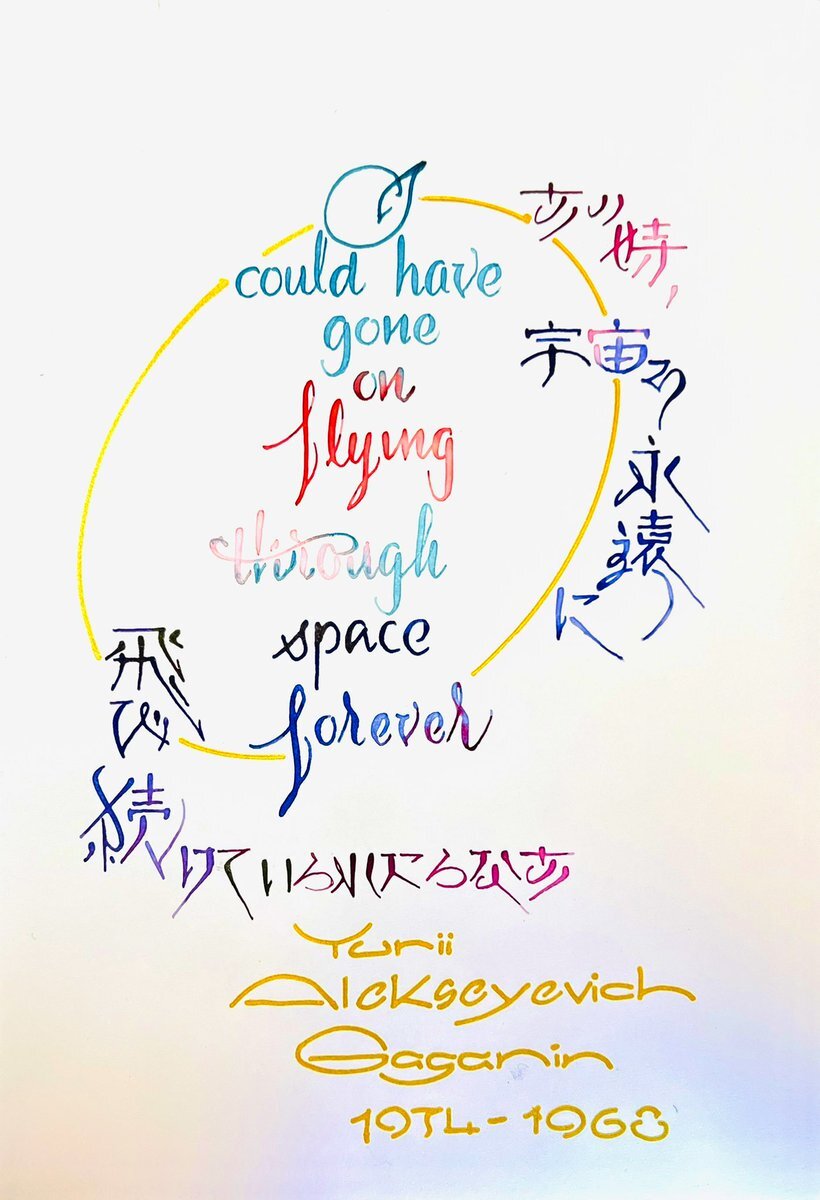 I
could have
gone
on
flying
through
space
forever
あの時,
宇宙を
永遠に
飛び
続けていられたらなあ
Yurii
Alekseyevich
Gagarin
1934-1968